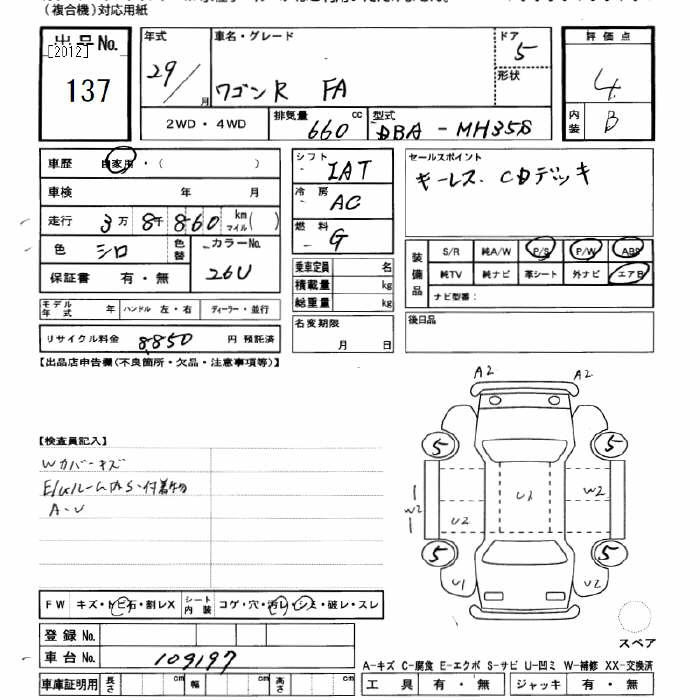 (複合機)対応用紙
出品No. [2012] 137
年式 29/ 月
車名・グレード ワゴンR FA
ドア 5
形状
評価点 4
内装 B
2WD・4WD
排気量 660 cc
型式 DBA-MH35S
車歴 自家用・( )
車検 年 月
走行 3万8千860 km マイル( )
色 シロ 色替
カラーNo. 26U
保証書 有・無
シフト IAT
冷房 AC
燃料 G
乗車定員 名
積載量 kg
総重量 kg
セールスポイント
キーレス. CDデッキ
装備品
S/R 純A/W P/S P/W ABS
純TV 純ナビ 革シート 外ナビ エアB
ナビ型番:
モデル年式 年 ハンドル 左・右 ディーラー・並行
リサイクル料金 8,850 円 預託済
名変期限 月 日
後日品
【出品店申告欄(不良箇所・欠品・注意事項等)】
A2 A2
【検査員記入】
Wカバーキズ
E/ルーム内S・付着物
A-U
5 5
U1 W2
W2 U2
5 5
U1
FW キズ・トビ石・割レX シート内装 コゲ・穴・汚レ・シミ・破レ・スレ
登録No.
車台No. 109197
スペア
A-キズ C-腐食 E-エクボ S-サビ U-凹ミ W-補修 XX-交換済
車庫証明用 長さ cm 幅 cm 高さ cm
工具 有・無 ジャッキ 有・無